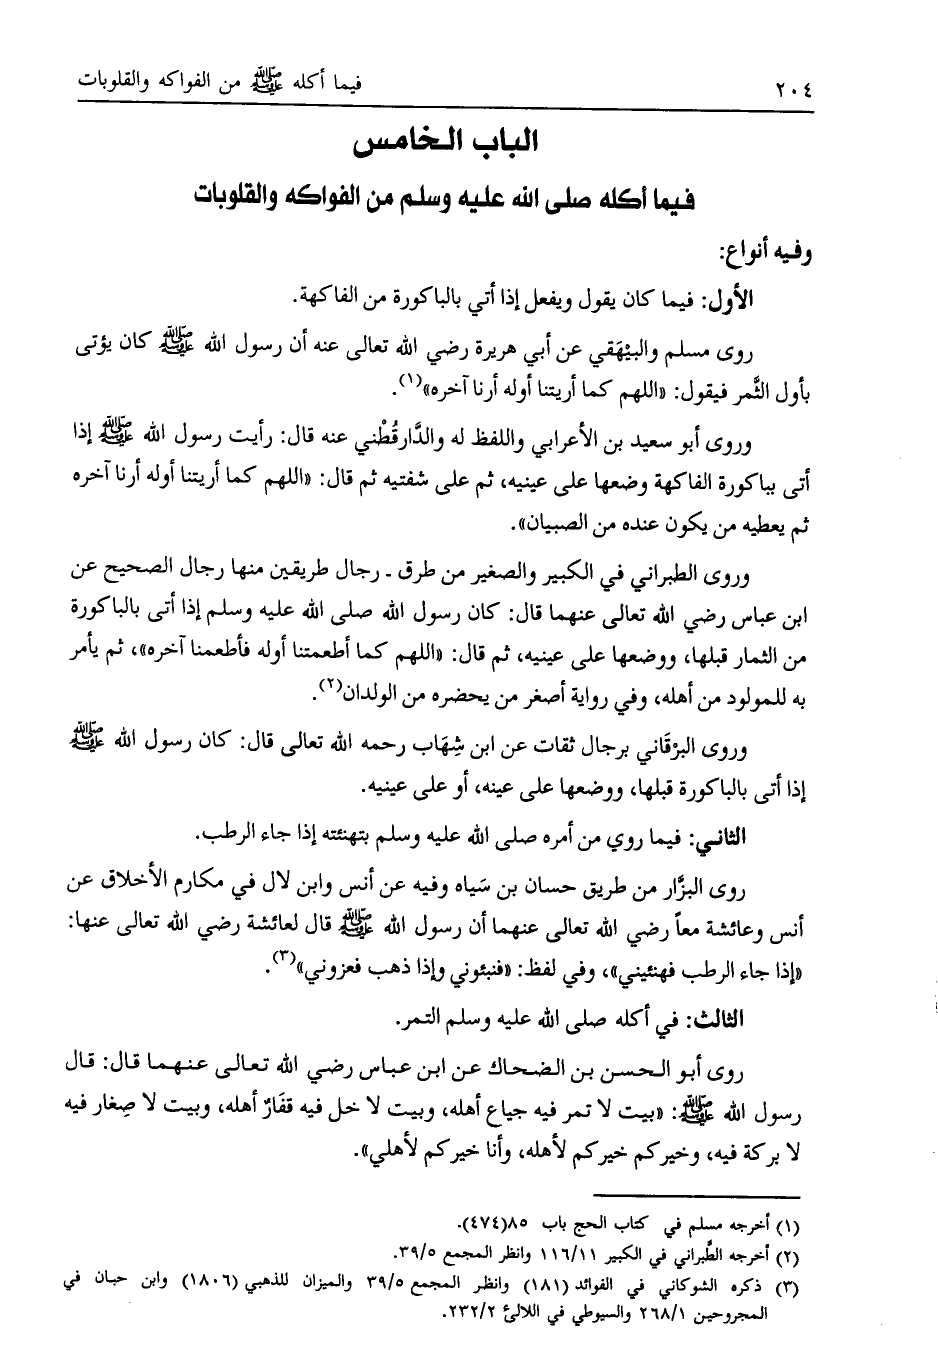 ٢٠٤ فيما أكله ﷺ من الفواكه والقلوبات
الباب الخامس
فيما أكله صلى الله عليه وسلم من الفواكه والقلوبات
وفيه أنواع:
الأول: فيما كان يقول ويفعل إذا أتي بالباكورة من الفاكهة.
روى مسلم والبيْهَقي عن أبي هريرة رضي الله تعالى عنه أن رسول الله ﷺ كان يؤتى
بأول الثَّمر فيقول: «اللهم كما أريتنا أوله أرنا آخره»(١).
وروى أبو سعيد بن الأعرابي واللفظ له والدَّارقُطْني عنه قال: رأيت رسول الله ﷺ إذا
أتى بباكورة الفاكهة وضعها على عينيه، ثم على شفتيه ثم قال: «اللهم كما أريتنا أوله أرنا آخره
ثم يعطيه من يكون عنده من الصبيان».
وروى الطبراني في الكبير والصغير من طرق ـ رجال طريقين منها رجال الصحيح عن
ابن عباس رضي الله تعالى عنهما قال: كان رسول الله صلى الله عليه وسلم إذا أتى بالباكورة
من الثمار قبلها، ووضعها على عينيه، ثم قال: «اللهم كما أطعمتنا أوله فأطعمنا آخره»، ثم يأمر
به للمولود من أهله، وفي رواية أصغر من يحضره من الولدان(٢).
وروى البرْقَاني برجال ثقات عن ابن شِهَاب رحمه الله تعالى قال: كان رسول الله ﷺ
إذا أتى بالباكورة قبلها، ووضعها على عينه، أو على عينيه.
الثاني: فيما روي من أمره صلى الله عليه وسلم بتهنئته إذا جاء الرطب.
روى البزَّار من طريق حسان بن سَياه وفيه عن أنس وابن لال في مكارم الأخلاق عن
أنس وعائشة معاً رضي الله تعالى عنهما أن رسول الله ﷺ قال لعائشة رضي الله تعالى عنها:
«إذا جاء الرطب فهنئيني»، وفي لفظ: «فنبئوني وإذا ذهب فعزوني»(٣).
الثالث: في أكله صلى الله عليه وسلم التمر.
روى أبو الحسن بن الضحاك عن ابن عباس رضي الله تعالى عنهما قال: قال
رسول الله ﷺ: «بيت لا تمر فيه جياع أهله، وبيت لا خل فيه قفَارٌ أهله، وبيت لا صِغار فيه
لا بركة فيه، وخيركم خيركم لأهله، وأنا خيركم لأهلي».
(١) أخرجه مسلم في كتاب الحج باب ٨٥(٤٧٤).
(٢) أخرجه الطَّبراني في الكبير ١١٦/١١ وانظر المجمع ٣٩/٥.
(٣) ذكره الشوكاني في الفوائد (١٨١) وانظر المجمع ٣٩/٥ والميزان للذهبي (١٨٠٦) وابن حبان في
المجروحين ٢٦٨/١ والسيوطي في اللآلئ ٢٣٢/٢.